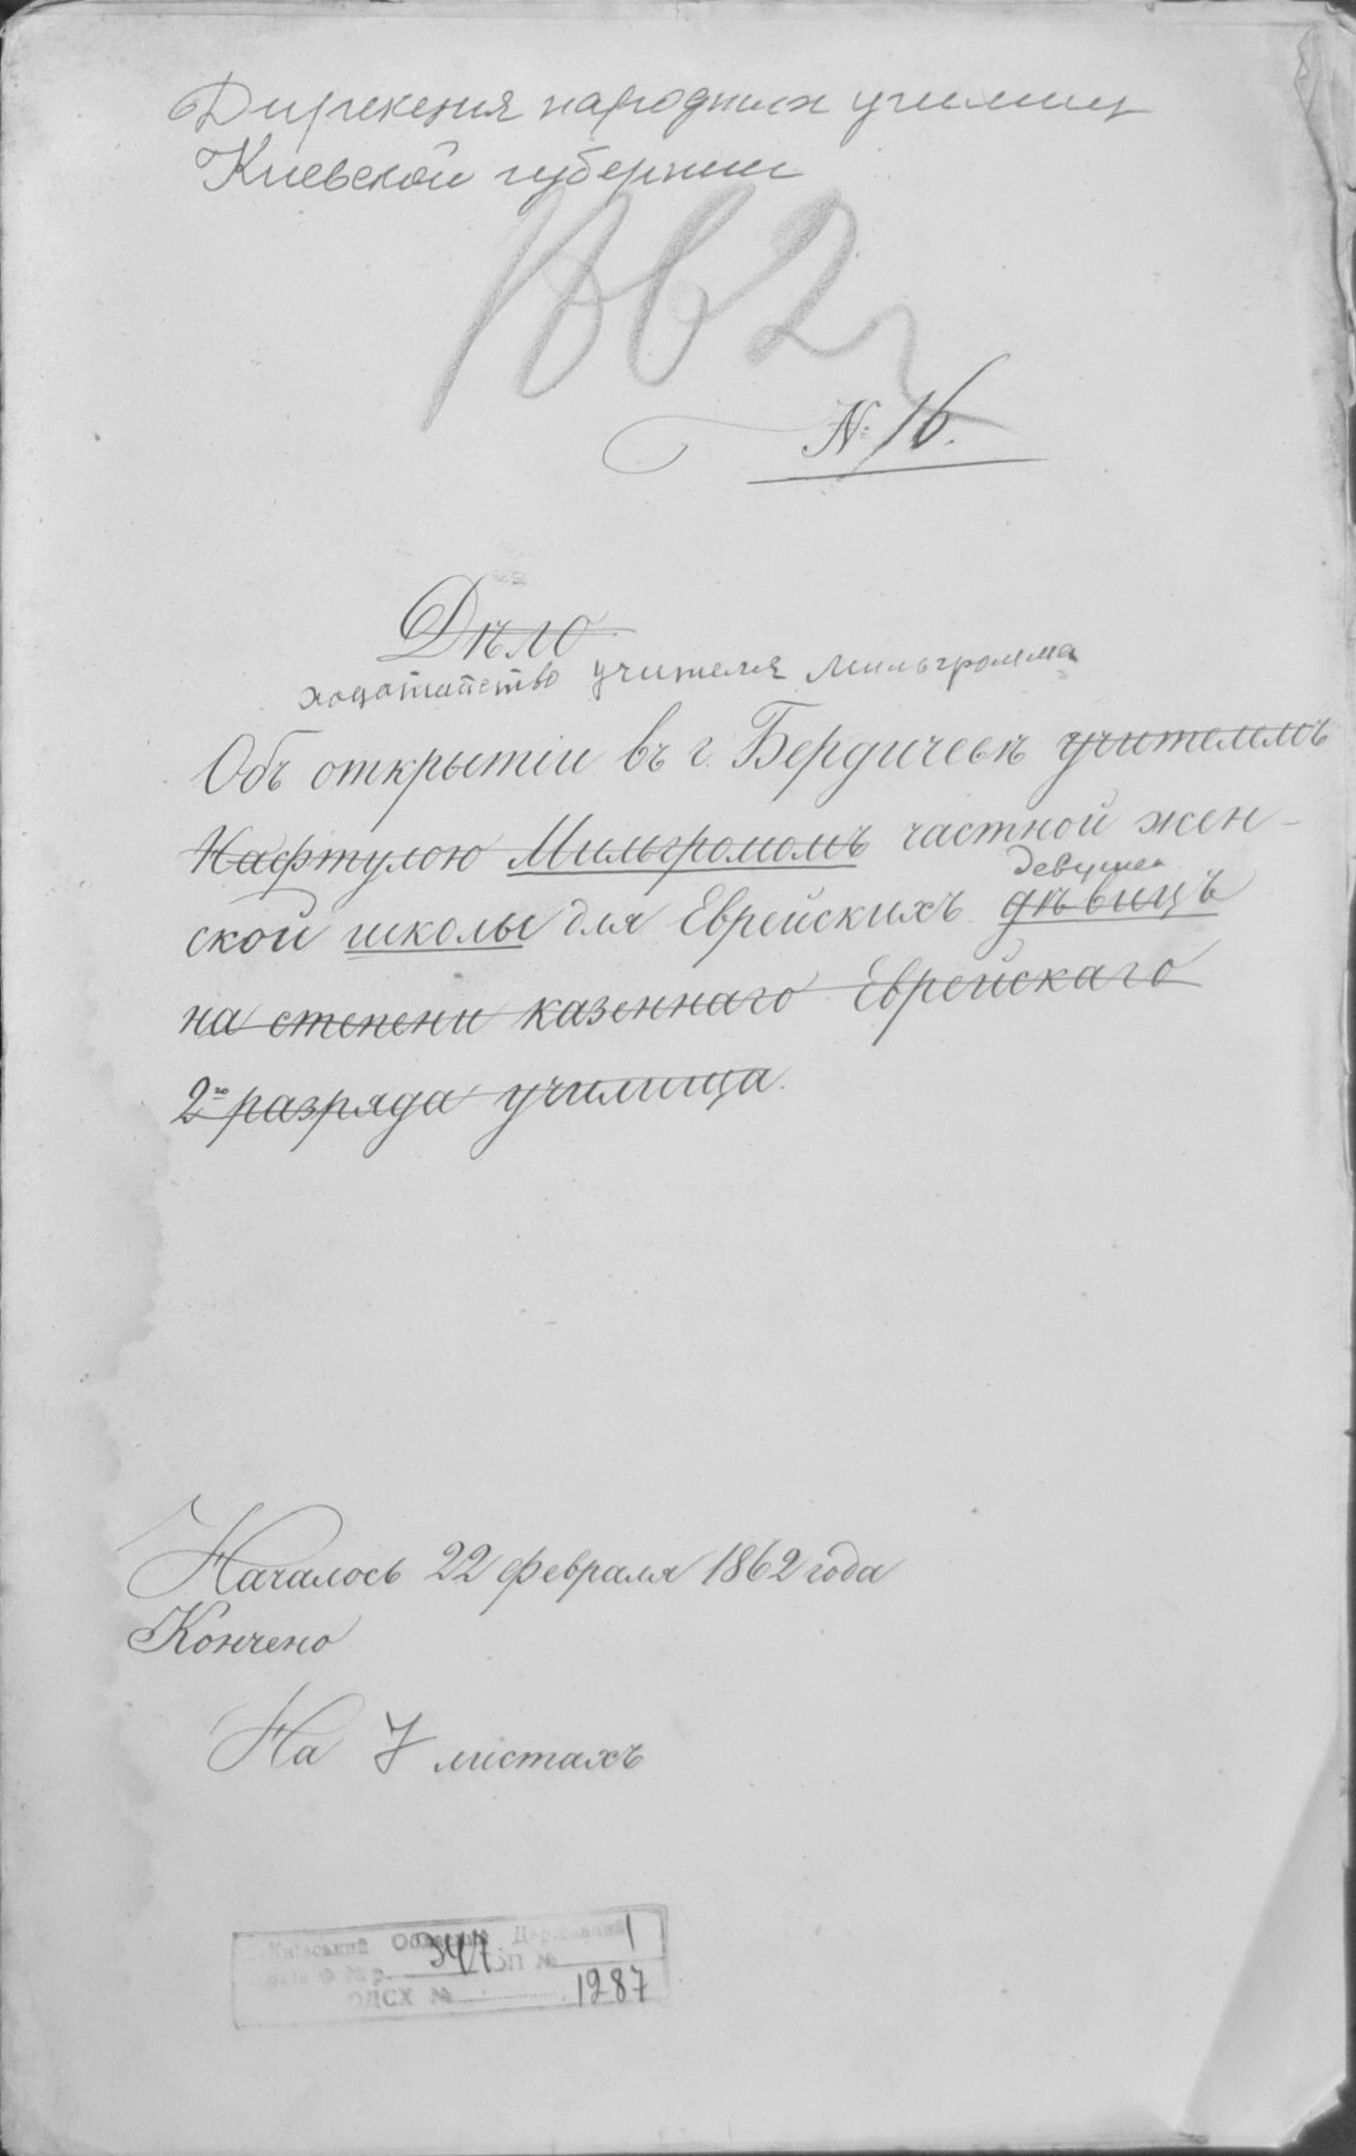 Дирекция народных училищ
Киевской губернии
1862
№ 16.
Дѣло
ходатайство учителя Мильгромма
Объ открытіи въ г. Бердичевѣ учителемъ
Нафтулою Мильгромомъ частной жен-
девушек
ской школы для Еврейскихъ дѣвицъ
на степени казеннаго Еврейскаго
2го разряда училища.
Началось 22 февраля 1862 года
Кончено
На 7 листахъ
Київський Обласний Державний
Архів Ф № р. 347 ОП № 1
ОДСХ № 1287